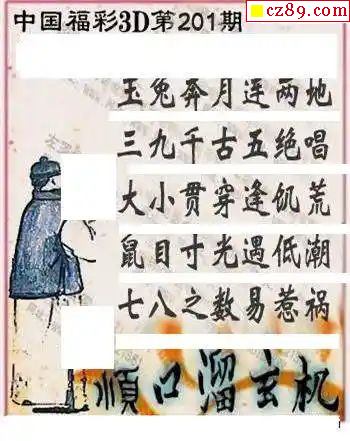 cz89.com
中国福彩3D第201期
玉兔奔月连两地
三九千古五绝唱
大小贯穿逢饥荒
鼠目寸光遇低潮
七八之数易惹祸
顺口溜玄机